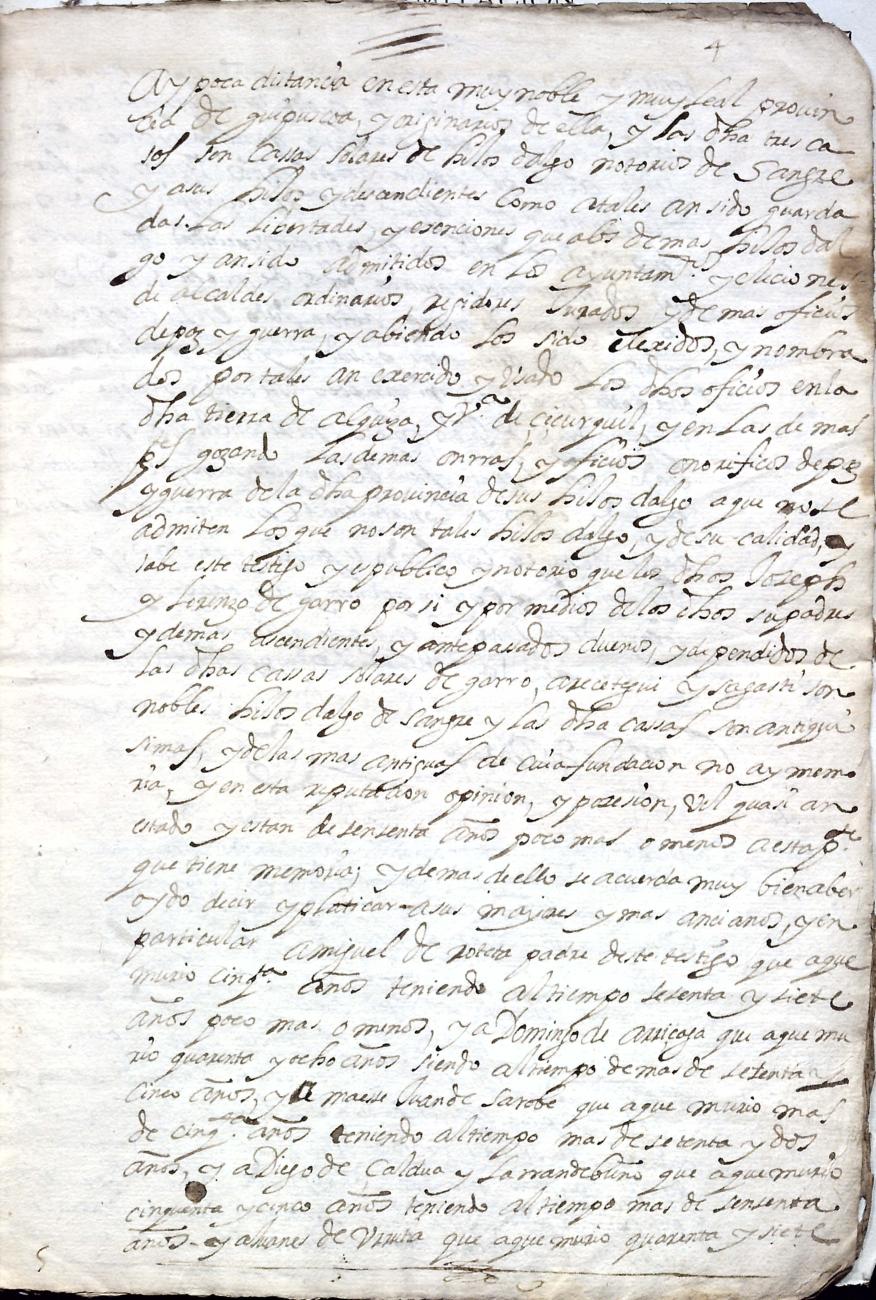 4
Ay poca distancia en esta muy noble y muy leal provin
cia de guipuscoa, y originarios de ella, y las dha tres ca
sas son cassas solares de hijos dalgo notorios de Sangre
y asus hijos y descendientes como atales an sido guarda
das las libertades, y esenciones que alos demas hijos dal
go y an sido admitidos en los ayuntamtos y eleciones
de alcaldes ordinarios, regidores Jurados y demas oficios
de paz y guerra, y abiendo los sido elexidos, y nombra
dos por tales an exercido y Usado los dhos oficios en la
dha tierra de alquiza, y Va de cicurquil, y en las de mas
ptes gozando las demas onrras, y oficios onorificos de paz
y guerra de la dha provincia de sus hijos dalgo a que no se
admiten los que no son tales hijos dalgo, y de su calidad, y
sabe este testigo y es publico y notorio que los dhos Joseph
y Lorenzo de garro por si y por medios de los dhos su padres
y demas ascendientes, y antepasados dueños, y dependidos de
las dhas cassas solares de garro, arecetegui y sagasti son
nobles hijos dalgo de sangre y las dha cassas son antiqui
simas, y de las mas antiguas de cuia fundacion no ay memo
ria, y en esta reputacion opinion, y posesion, vel quasi an
estado y estan de sensenta años poco mas o menos a esta pte
que tiene memoria; y demas de ello se acuerda muy bien aber
oydo decir y platicar a sus maiores y mas ancianos, y en
particular a miguel de roteta padre deste testigo que a que
murio cinqta años teniendo al tiempo setenta y siete
años poco mas o menos, y a Domingo de arricaga que a que mu
rio quarenta y ocho años siendo al tiempo de mas de setenta y
cinco años, y maese Juan de Sarobe que a que murio mas
de cinqta años teniendo al tiempo mas de setenta y dos
años, y a Diego de Caldua y que a que murio
cinquenta y cinco años teniendo al tiempo mas de sensenta
años y a Juanes de Urruta que a que murio quarenta y siete